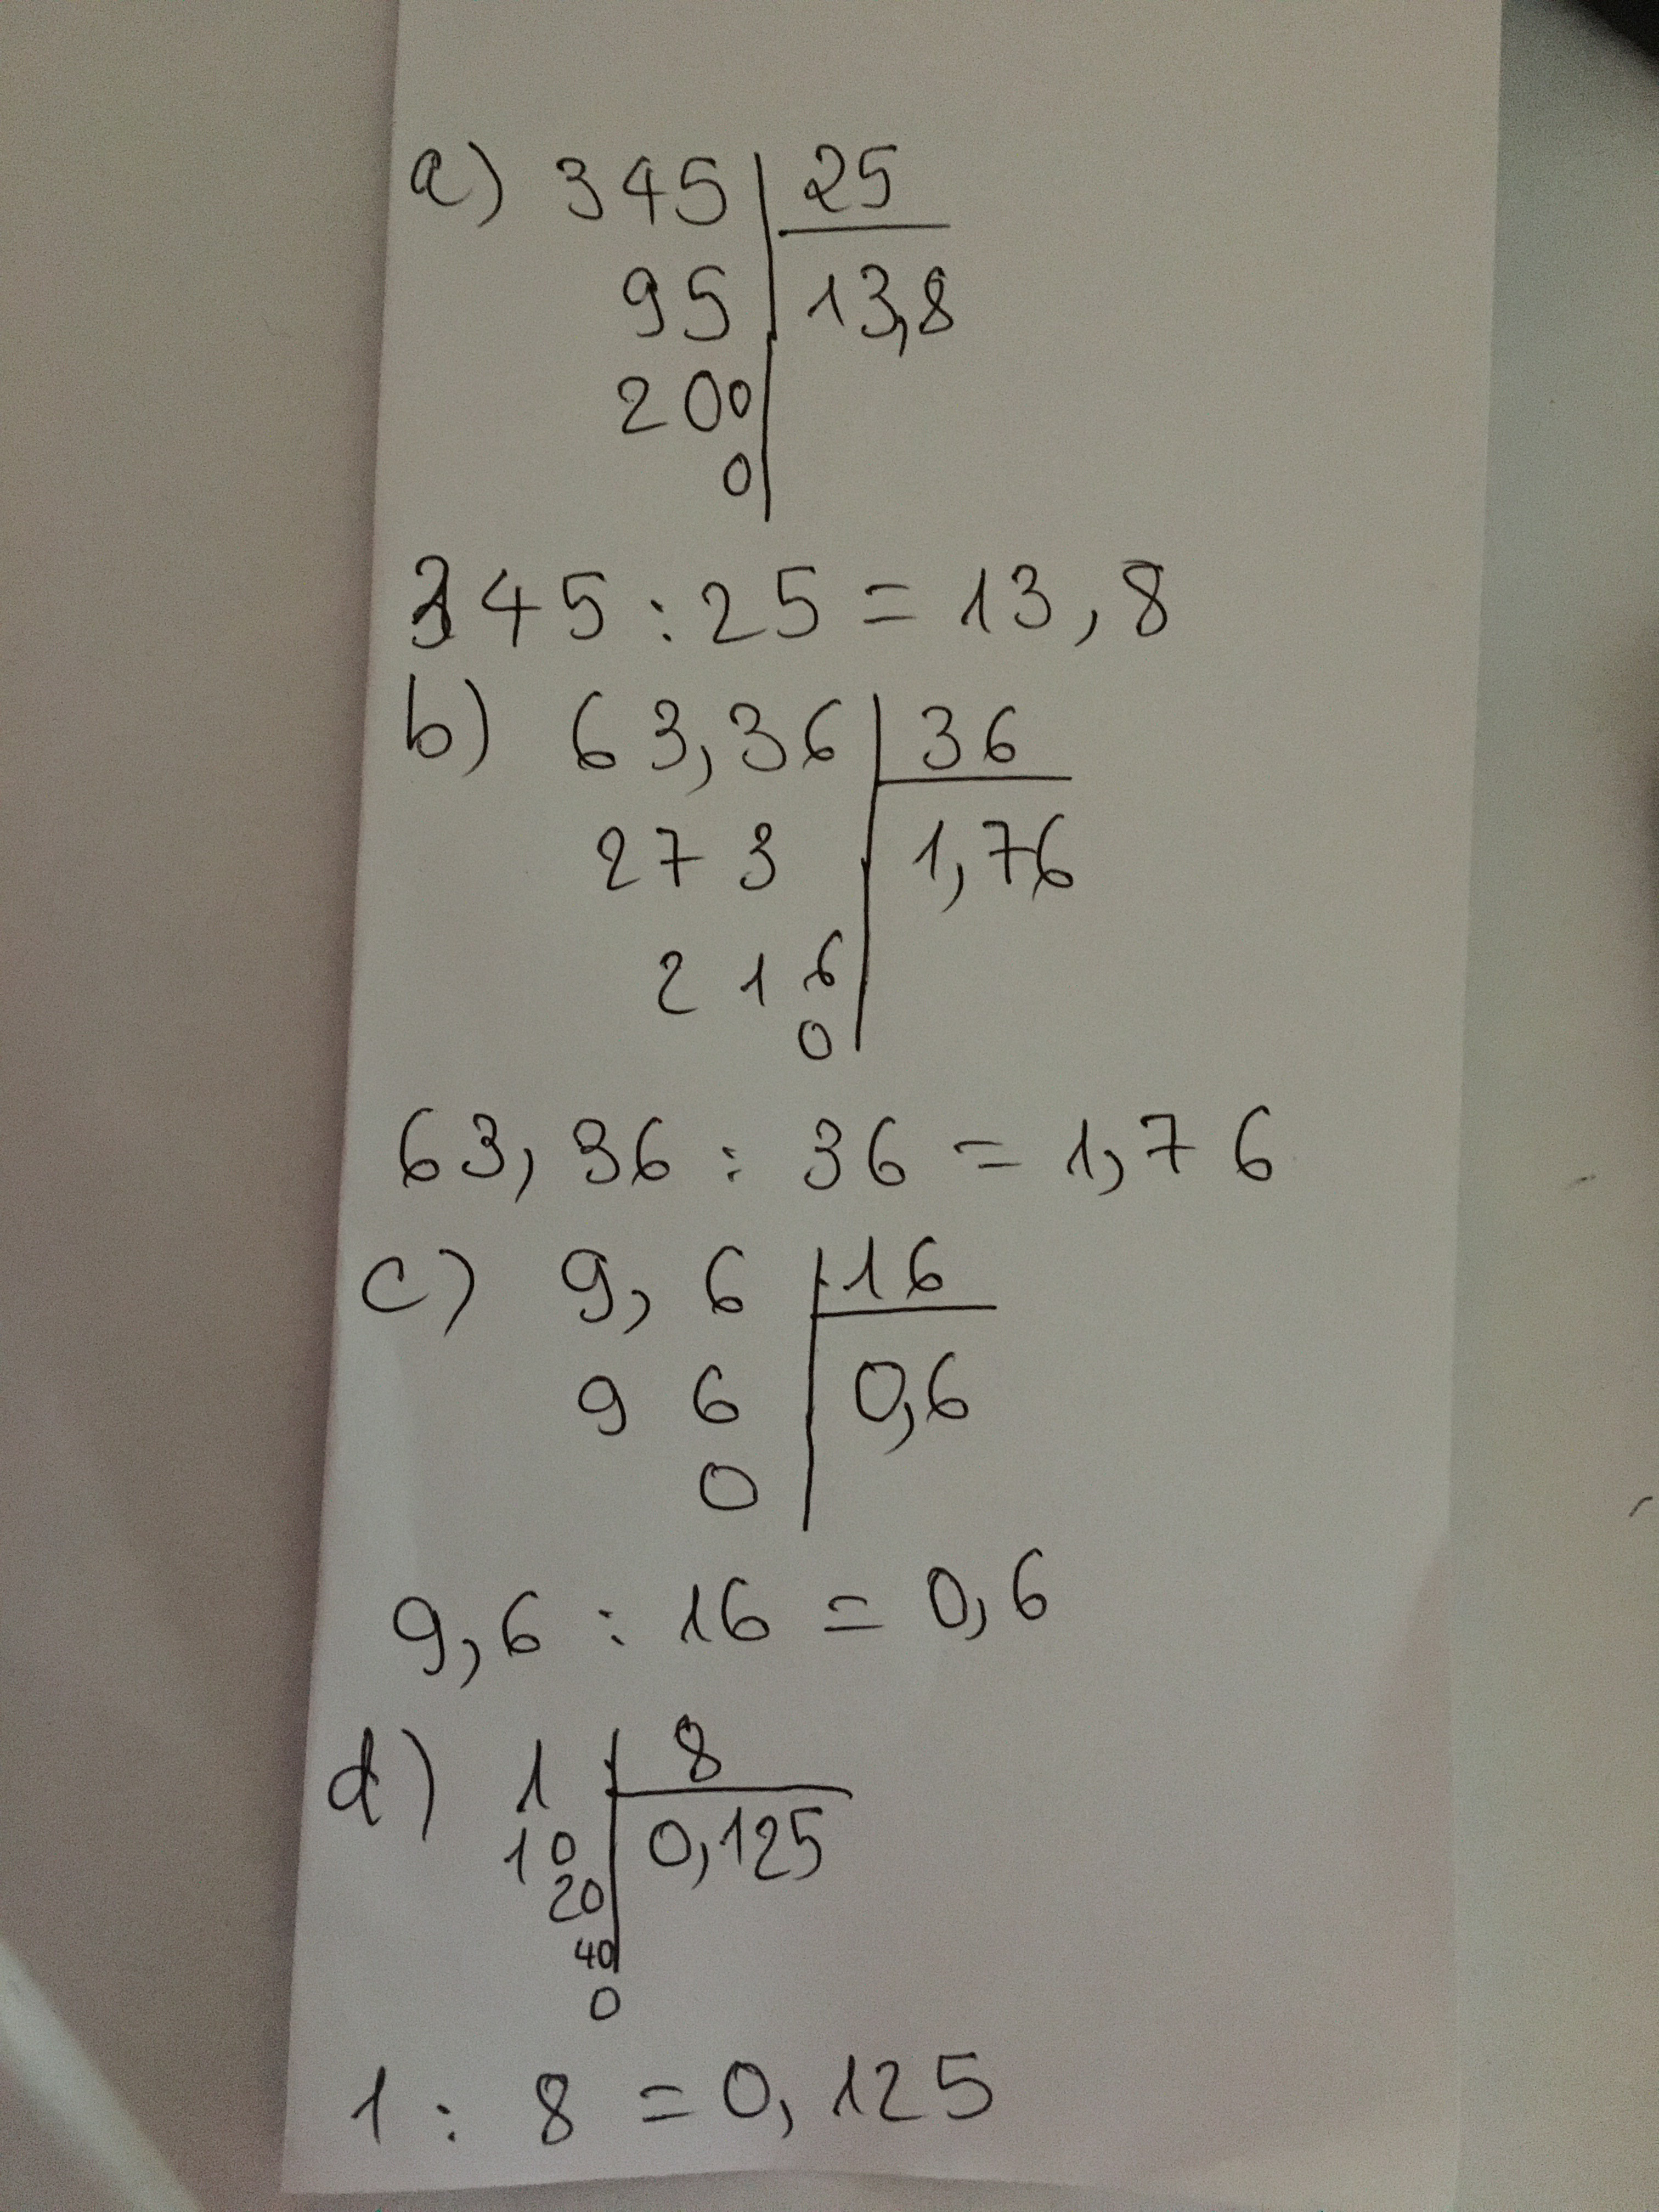 a) 345 | 25
95 | 13,8
200
0
345 : 25 = 13,8
b) 63,36 | 36
273 | 1,76
216
0
63,36 : 36 = 1,76
c) 9,6 | 16
96 | 0,6
0
9,6 : 16 = 0,6
d) 1 | 8
10 | 0,125
20
40
0
1 : 8 = 0,125